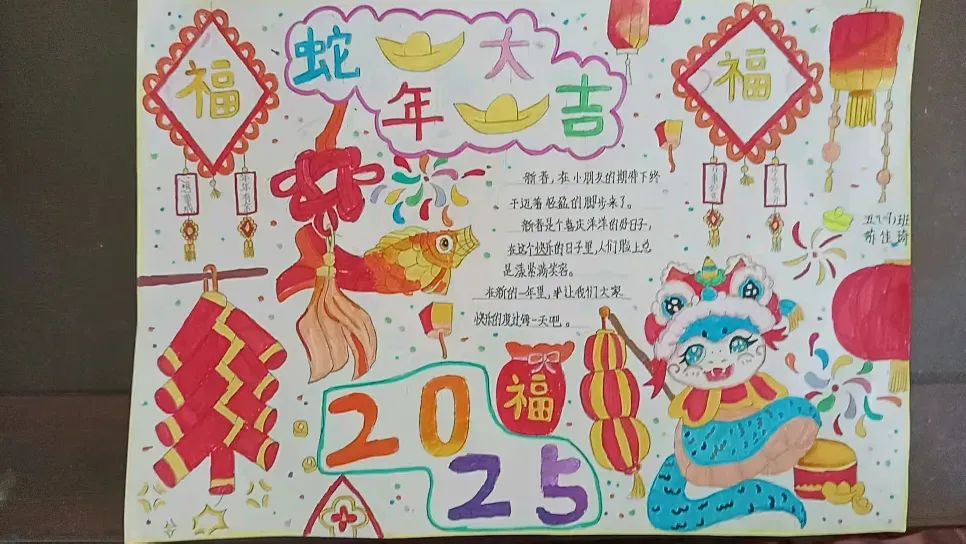 福
蛇年大吉
福
年年有余
新春,在小朋友的期待下终
于迈着轻盈的脚步来了。
新春是个喜庆洋洋的好日子,
在这个快乐的日子里,人们脸上总
是荡漾满笑容。
在新的一年里,让我们大家
快乐的度过每一天吧。
班
福
2025